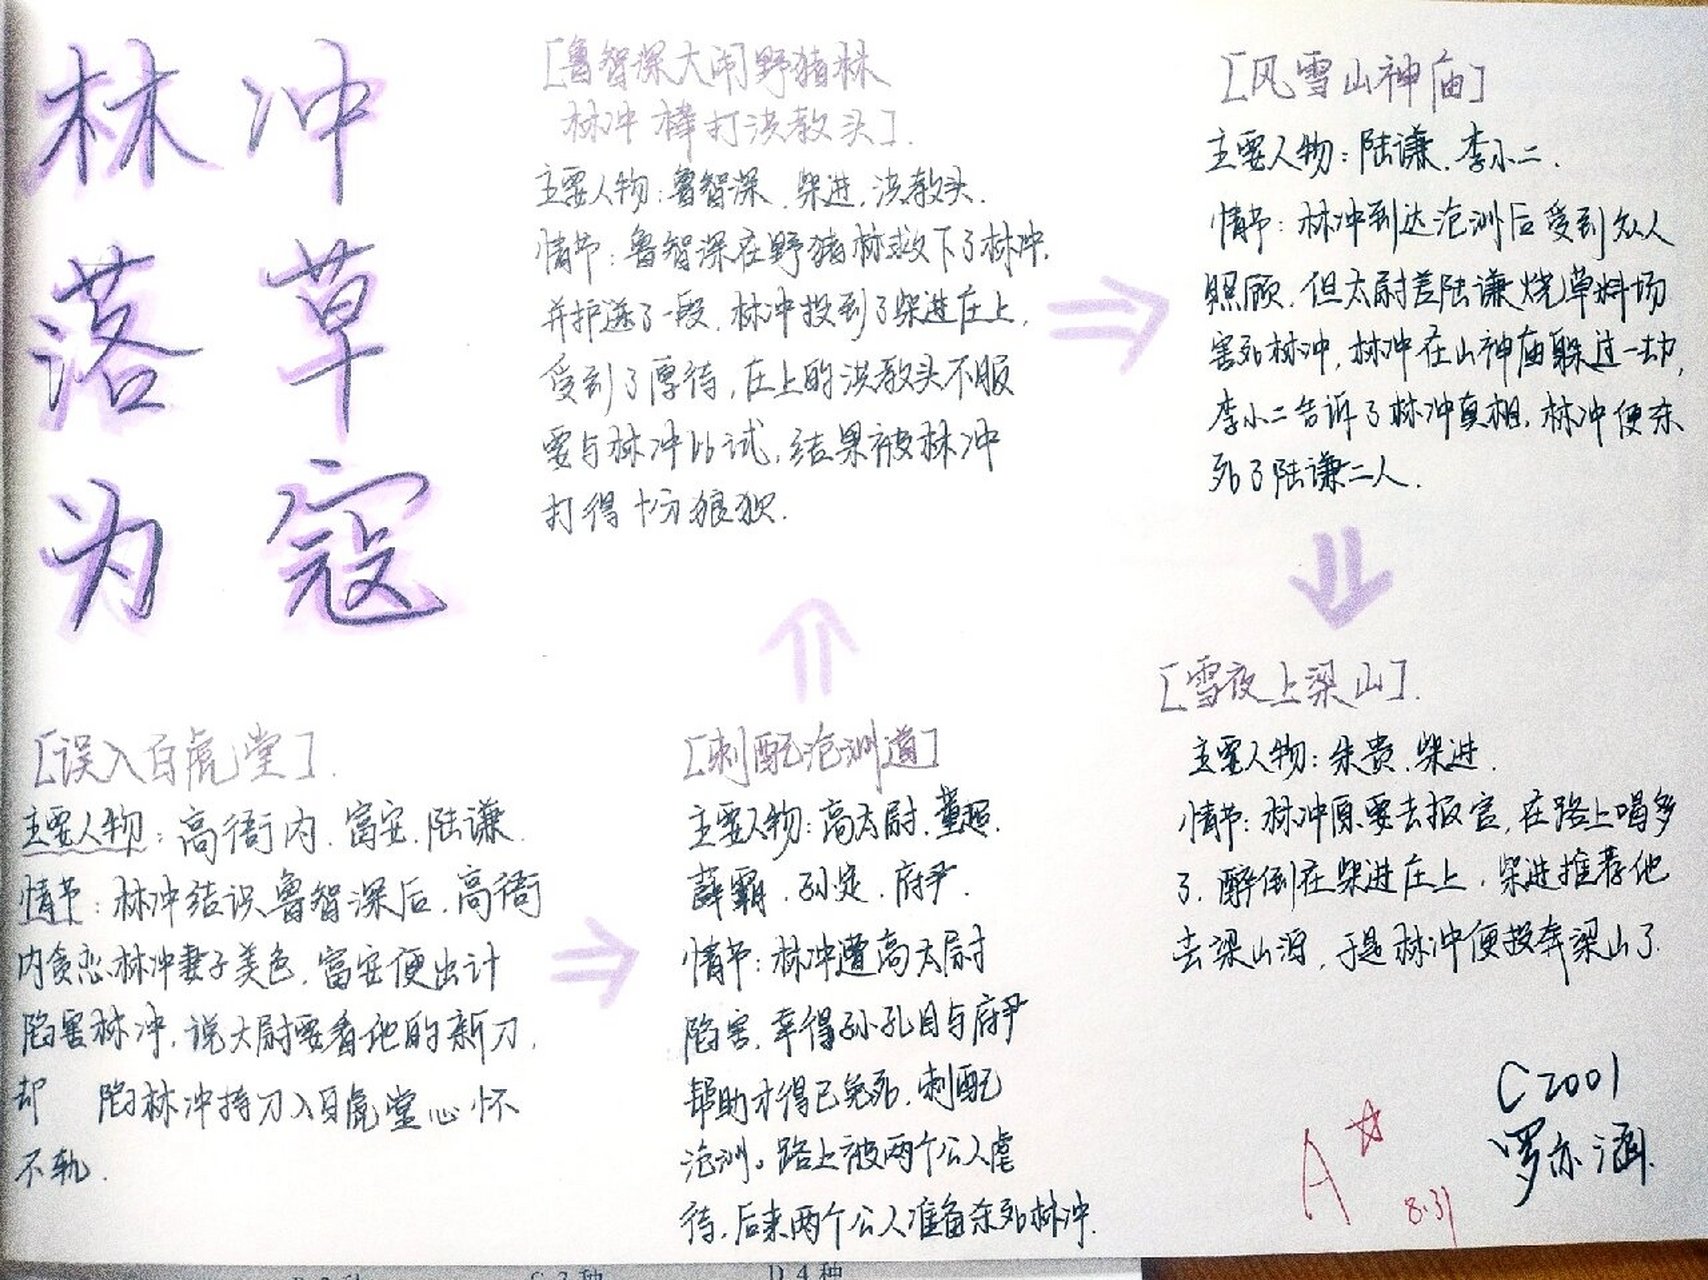 林冲
落草
为寇
[误入白虎堂].
主要人物：高衙内.富安.陆谦.
情节：林冲结识鲁智深后.高衙
内贪恋林冲妻子美色.富安便出计
陷害林冲.说太尉要看他的新刀.
却 陷林冲持刀入白虎堂心怀
不轨.
[刺配沧州道]
主要人物：高太尉.董超.
薛霸.孙定.府尹.
情节：林冲遭高太尉
陷害.幸得孙孔目与府尹
帮助才得已免死.刺配
沧州。路上被两个公人虐
待.后来两个公人准备杀死林冲.
[鲁智深大闹野猪林
林冲棒打洪教头].
主要人物：鲁智深.柴进.洪教头.
情节：鲁智深在野猪林救下了林冲.
并护送了一段.林冲投到了柴进庄上,
受到了厚待,庄上的洪教头不服
要与林冲比试,结果被林冲
打得十分狼狈.
[风雪山神庙]
主要人物：陆谦.李小二.
情节：林冲到达沧州后受到众人
照顾.但太尉差陆谦烧草料场
害死林冲,林冲在山神庙躲过一劫,
李小二告诉了林冲真相,林冲便杀
死了陆谦二人.
[雪夜上梁山].
主要人物：朱贵.柴进.
情节：林冲原要去报官,在路上喝多
了.醉倒在柴进庄上,柴进推荐他
去梁山泊,于是林冲便投奔梁山了.
C2001
罗亦涵.
A☆
8.31
C 3 种
D 4 种